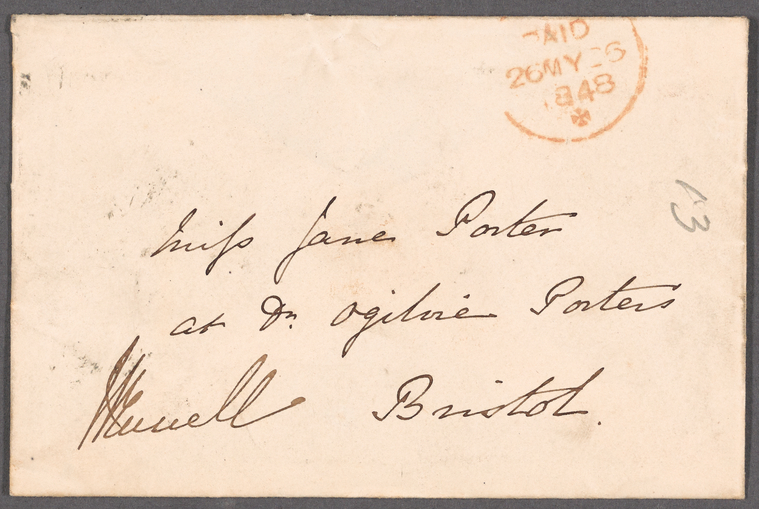 PAID
26MY26
1848
13
Miſs Jane Porter
at Dr. Ogilvie Porter's
Bristol.